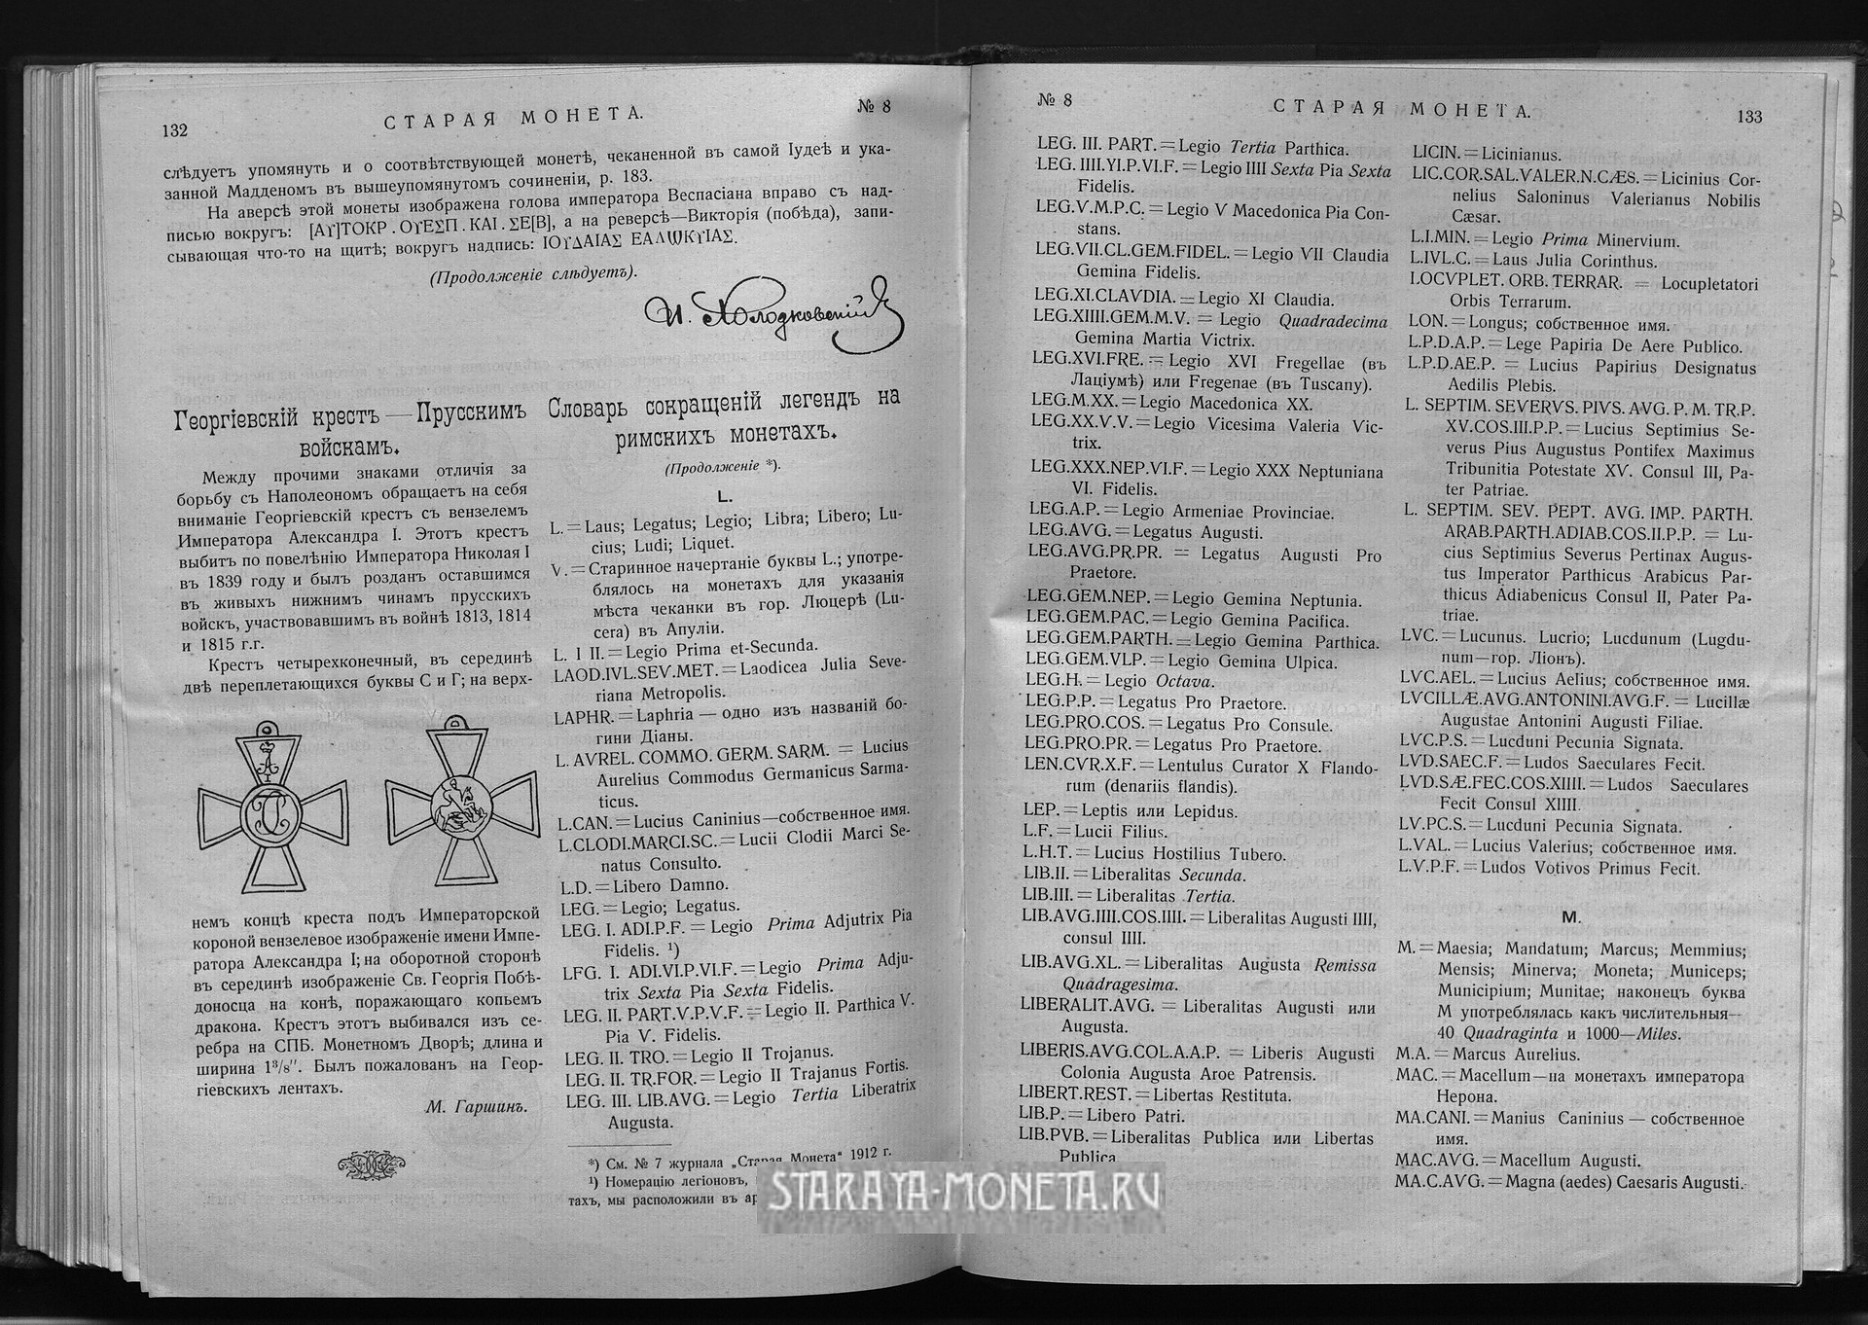 132
СТАРАЯ МОНЕТА.
№ 8
слѣдуетъ упомянуть и о соотвѣтствующей монетѣ, чеканенной въ самой Іудеѣ и ука-
занной Мадденомъ въ вышеупомянутомъ сочиненіи, р. 183.
На аверсѣ этой монеты изображена голова императора Веспасіана вправо съ над-
писью вокругъ: [ΑΥ]ΤΟΚΡ . ΟΥΕΣΠ . ΚΑΙ . ΣΕ[Β], а на реверсѣ—Викторія (побѣда), запи-
сывающая что-то на щитѣ; вокругъ надпись: ΙΟΥΔΑΙΑΣ ΕΑΛѠΚΥΙΑΣ.
(Продолженіе слѣдуетъ).
И. Холодковскій
Георгіевскій крестъ — Прусскимъ
войскамъ.
Между прочими знаками отличія за
борьбу съ Наполеономъ обращаетъ на себя
вниманіе Георгіевскій крестъ съ вензелемъ
Императора Александра I. Этотъ крестъ
выбитъ по повелѣнію Императора Николая I
въ 1839 году и былъ розданъ оставшимся
въ живыхъ нижнимъ чинамъ прусскихъ
войскъ, участвовавшимъ въ войнѣ 1813, 1814
и 1815 г.г.
Крестъ четырехконечный, въ серединѣ
двѣ переплетающихся буквы С и Г; на верх-
немъ концѣ креста подъ Императорской
короной вензелевое изображеніе имени Импе-
ратора Александра I; на оборотной сторонѣ
въ серединѣ изображеніе Св. Георгія Побѣ-
доносца на конѣ, поражающаго копьемъ
дракона. Крестъ этотъ выбивался изъ се-
ребра на СПБ. Монетномъ Дворѣ; длина и
ширина 1³/₈". Былъ пожалованъ на Геор-
гіевскихъ лентахъ.
М. Гаршинъ.
Словарь сокращеній легендъ на
римскихъ монетахъ.
(Продолженіе *).
L.
L. = Laus; Legatus; Legio; Libra; Libero; Lu-
cius; Ludi; Liquet.
V. = Старинное начертаніе буквы L.; употре-
блялось на монетахъ для указанія
мѣста чеканки въ гор. Люцерѣ (Lu-
cera) въ Апуліи.
L. I II. = Legio Prima et-Secunda.
LAOD.IVL.SEV.MET. = Laodicea Julia Seve-
riana Metropolis.
LAPHR. = Laphria — одно изъ названій бо-
гини Діаны.
L. AVREL. COMMO. GERM. SARM. = Lucius
Aurelius Commodus Germanicus Sarma-
ticus.
L.CAN. = Lucius Caninius—собственное имя.
L.CLODI.MARCI.SC. = Lucii Clodii Marci Se-
natus Consulto.
L.D. = Libero Damno.
LEG. = Legio; Legatus.
LEG. I. ADI.P.F. = Legio Prima Adjutrix Pia
Fidelis. ¹)
LFG. I. ADI.VI.P.VI.F. = Legio Prima Adju-
trix Sexta Pia Sexta Fidelis.
LEG. II. PART.V.P.V.F. = Legio II. Parthica V.
Pia V. Fidelis.
LEG. II. TRO. = Legio II Trojanus.
LEG. II. TR.FOR. = Legio II Trajanus Fortis.
LEG. III. LIB.AVG. = Legio Tertia Liberatrix
Augusta.
*) См. № 7 журнала „Старая Монета" 1912 г.
¹) Номерацію легіоновъ,
тахъ, мы расположили въ
№ 8
СТАРАЯ МОНЕТА.
133
LEG. III. PART. = Legio Tertia Parthica.
LEG. IIII.YI.P.VI.F. = Legio IIII Sexta Pia Sexta
Fidelis.
LEG.V.M.P.C. = Legio V Macedonica Pia Con-
stans.
LEG.VII.CL.GEM.FIDEL. = Legio VII Claudia
Gemina Fidelis.
LEG.XI.CLAVDIA. = Legio XI Claudia.
LEG.XIIII.GEM.M.V. = Legio Quadradecima
Gemina Martia Victrix.
LEG.XVI.FRE. = Legio XVI Fregellae (въ
Лаціумѣ) или Fregenae (въ Tuscany).
LEG.M.XX. = Legio Macedonica XX.
LEG.XX.V.V. = Legio Vicesima Valeria Vic-
trix.
LEG.XXX.NEP.VI.F. = Legio XXX Neptuniana
VI. Fidelis.
LEG.A.P. = Legio Armeniae Provinciae.
LEG.AVG. = Legatus Augusti.
LEG.AVG.PR.PR. = Legatus Augusti Pro
Praetore.
LEG.GEM.NEP. = Legio Gemina Neptunia.
LEG.GEM.PAC. = Legio Gemina Pacifica.
LEG.GEM.PARTH. = Legio Gemina Parthica.
LEG.GEM.VLP. = Legio Gemina Ulpica.
LEG.H. = Legio Octava.
LEG.P.P. = Legatus Pro Praetore.
LEG.PRO.COS. = Legatus Pro Consule.
LEG.PRO.PR. = Legatus Pro Praetore.
LEN.CVR.X.F. = Lentulus Curator X Flando-
rum (denariis flandis).
LEP. = Leptis или Lepidus.
L.F. = Lucii Filius.
L.H.T. = Lucius Hostilius Tubero.
LIB.II. = Liberalitas Secunda.
LIB.III. = Liberalitas Tertia.
LIB.AVG.IIII.COS.IIII. = Liberalitas Augusti IIII,
consul IIII.
LIB.AVG.XL. = Liberalitas Augusta Remissa
Quadragesima.
LIBERALIT.AVG. = Liberalitas Augusti или
Augusta.
LIBERIS.AVG.COL.A.A.P. = Liberis Augusti
Colonia Augusta Aroe Patrensis.
LIBERT.REST. = Libertas Restituta.
LIB.P. = Libero Patri.
LIB.PVB. = Liberalitas Publica или Libertas
Publica
LICIN. = Licinianus.
LIC.COR.SAL.VALER.N.CÆS. = Licinius Cor-
nelius Saloninus Valerianus Nobilis
Cæsar.
L.I.MIN. = Legio Prima Minervium.
L.IVL.C. = Laus Julia Corinthus.
LOCVPLET. ORB. TERRAR. = Locupletatori
Orbis Terrarum.
LON. = Longus; собственное имя.
L.P.D.A.P. = Lege Papiria De Aere Publico.
L.P.D.AE.P. = Lucius Papirius Designatus
Aedilis Plebis.
L. SEPTIM. SEVERVS. PIVS. AVG. P. M. TR.P.
XV.COS.III.P.P. = Lucius Septimius Se-
verus Pius Augustus Pontifex Maximus
Tribunitia Potestate XV. Consul III, Pa-
ter Patriae.
L. SEPTIM. SEV. PEPT. AVG. IMP. PARTH.
ARAB.PARTH.ADIAB.COS.II.P.P. = Lu-
cius Septimius Severus Pertinax Augus-
tus Imperator Parthicus Arabicus Par-
thicus Adiabenicus Consul II, Pater Pa-
triae.
LVC. = Lucunus. Lucrio; Lucdunum (Lugdu-
num—гор. Ліонъ).
LVC.AEL. = Lucius Aelius; собственное имя.
LVCILLÆ.AVG.ANTONINI.AVG.F. = Lucillæ
Augustae Antonini Augusti Filiae.
LVC.P.S. = Lucduni Pecunia Signata.
LVD.SAEC.F. = Ludos Saeculares Fecit.
LVD.SÆ.FEC.COS.XIIII. = Ludos Saeculares
Fecit Consul XIIII.
LV.PC.S. = Lucduni Pecunia Signata.
L.VAL. = Lucius Valerius; собственное имя.
L.V.P.F. = Ludos Votivos Primus Fecit.
M.
M. = Maesia; Mandatum; Marcus; Memmius;
Mensis; Minerva; Moneta; Municeps;
Municipium; Munitae; наконецъ буква
М употреблялась какъ числительныя—
40 Quadraginta и 1000—Miles.
M.A. = Marcus Aurelius.
MAC. = Macellum—на монетахъ императора
Нерона.
MA.CANI. = Manius Caninius — собственное
имя.
MAC.AVG. = Macellum Augusti.
MA.C.AVG. = Magna (aedes) Caesaris Augusti.
STARAYA-MONETA.RU